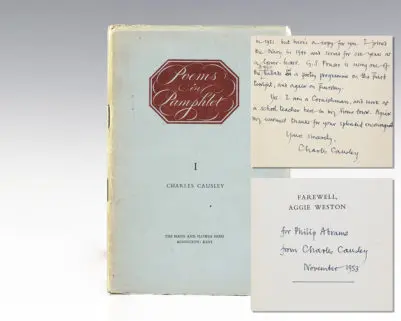 Poems
in
Pamphlet
I
CHARLES CAUSLEY
THE HAND AND FLOWER PRESS
ALDINGTON, KENT
in 1951 but here's a copy for you. I joined
the Navy in 1940 and served for six years as
a lower-deck. G.S. Fraser is using one of
the in a poetry programme on the Third
tonight, and again on Thursday.
Yes: I am a Cornishman, and work as
a school teacher here in my home town. Again
my warmest thanks for your splendid encouragement
Yours sincerely,
Charles Causley
FAREWELL,
AGGIE WESTON
for Philip Abrams
from Charles Causley
November 1953